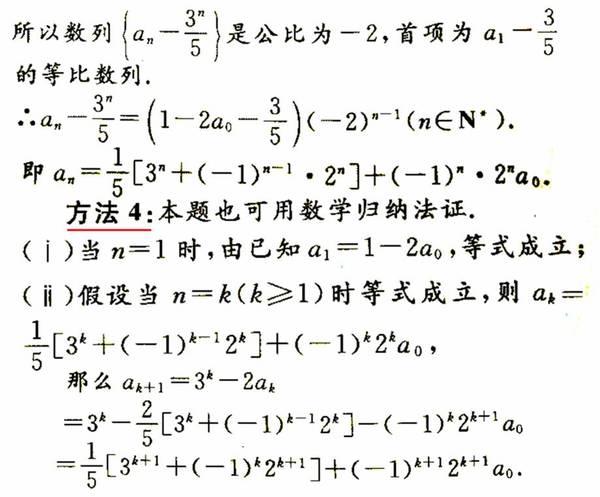 所以数列{aₙ−3ⁿ/5}是公比为−2,首项为 a₁−3/5
的等比数列.
∴aₙ−3ⁿ/5=(1−2a₀−3/5)(−2)ⁿ⁻¹(n∈N*).
即 aₙ=1/5[3ⁿ+(−1)ⁿ⁻¹·2ⁿ]+(−1)ⁿ·2ⁿa₀.
方法 4:本题也可用数学归纳法证.
(ⅰ)当 n=1 时,由已知 a₁=1−2a₀,等式成立;
(ⅱ)假设当 n=k(k≥1)时等式成立,则 aₖ=
1/5[3ᵏ+(−1)ᵏ⁻¹2ᵏ]+(−1)ᵏ2ᵏa₀,
那么 aₖ₊₁=3ᵏ−2aₖ
=3ᵏ−2/5[3ᵏ+(−1)ᵏ⁻¹2ᵏ]−(−1)ᵏ2ᵏ⁺¹a₀
=1/5[3ᵏ⁺¹+(−1)ᵏ2ᵏ⁺¹]+(−1)ᵏ⁺¹2ᵏ⁺¹a₀.